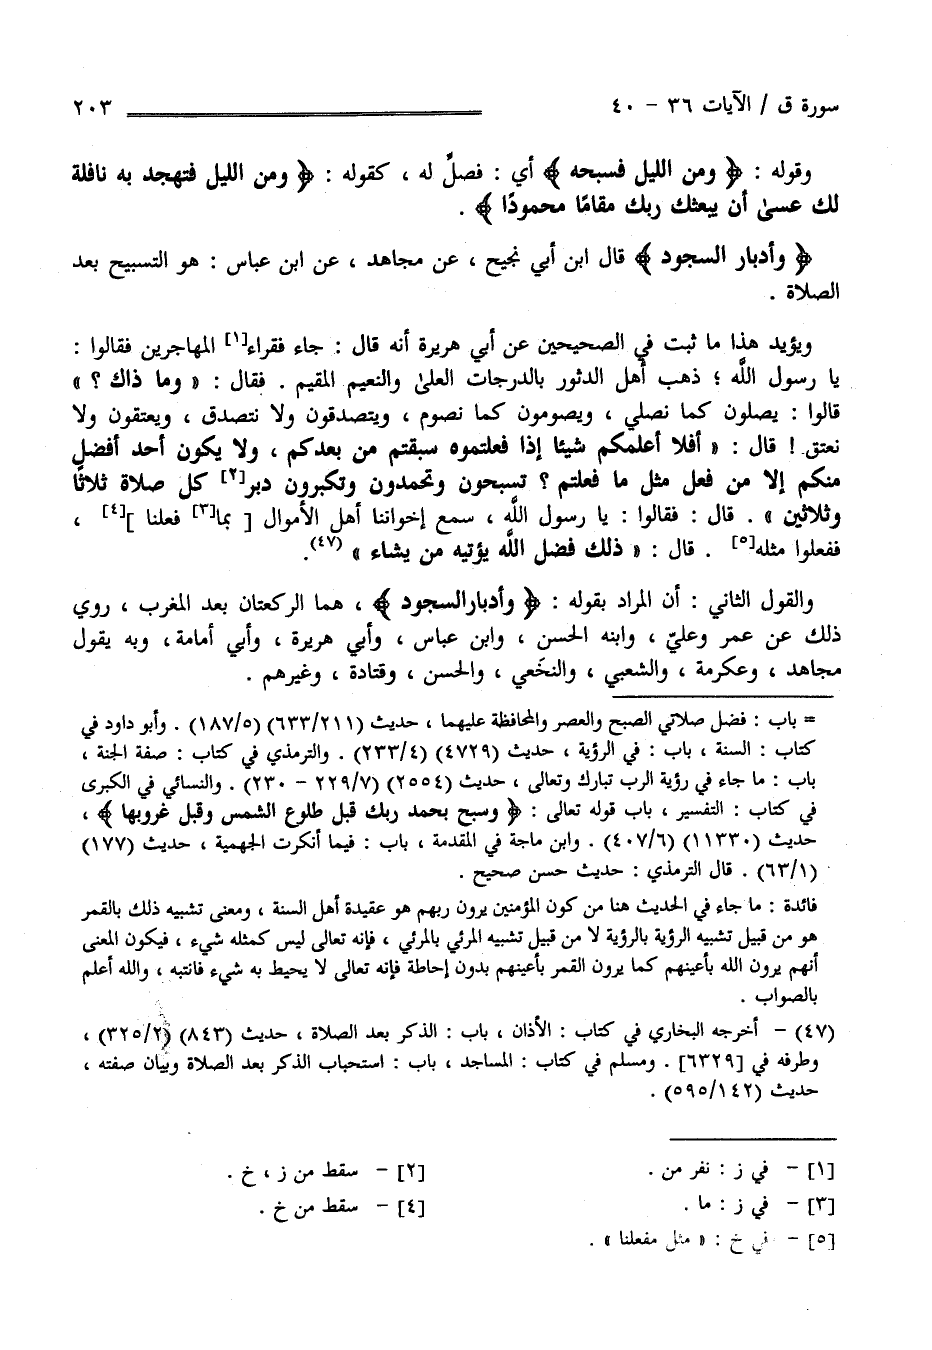 سورة ق / الآيات ٣٦ - ٤٠ ٢٠٣
وقوله : ﴿ ومن الليل فسبحه ﴾ أي : فصلِّ له ، كقوله : ﴿ ومن الليل فتهجد به نافلة
لك عسىٰ أن يبعثك ربك مقامًا محمودًا ﴾ .
﴿ وأدبار السجود ﴾ قال ابن أبي نجيح ، عن مجاهد ، عن ابن عباس : هو التسبيح بعد
الصلاة .
ويؤيد هذا ما ثبت في الصحيحين عن أبي هريرة أنه قال : جاء فقراء[١] المهاجرين فقالوا :
يا رسول اللَّه ؛ ذهب أهل الدثور بالدرجات العلىٰ والنعيم المقيم . فقال : « وما ذاك ؟ »
قالوا : يصلون كما نصلي ، ويصومون كما نصوم ، ويتصدقون ولا نتصدق ، ويعتقون ولا
نعتق ! قال : « أفلا أعلمكم شيئا إذا فعلتموه سبقتم من بعدكم ، ولا يكون أحد أفضل
منكم إلا من فعل مثل ما فعلتم ؟ تسبحون وتحمدون وتكبرون دبر[٢] كل صلاة ثلاثًا
وثلاثين » . قال : فقالوا : يا رسول اللَّه ، سمع إخواننا أهل الأموال [ بما[٣] فعلنا ][٤] ،
ففعلوا مثله[٥] . قال : « ذلك فضل اللَّه يؤتيه من يشاء » (٤٧).
والقول الثاني : أن المراد بقوله : ﴿ وأدبارالسجود ﴾ ، هما الركعتان بعد المغرب ، روي
ذلك عن عمر وعليّ ، وابنه الحسن ، وابن عباس ، وأبي هريرة ، وأبي أمامة ، وبه يقول
مجاهد ، وعكرمة ، والشعبي ، والنخَعي ، والحسن ، وقتادة ، وغيرهم .
= باب : فضل صلاتي الصبح والعصر والمحافظة عليهما ، حديث (٦٣٣/٢١١) (١٨٧/٥) . وأبو داود في
كتاب : السنة ، باب : في الرؤية ، حديث (٤٧٢٩) (٢٣٣/٤) . والترمذي في كتاب : صفة الجنة ،
باب : ما جاء في رؤية الرب تبارك وتعالى ، حديث (٢٥٥٤) (٢٢٩/٧ - ٢٣٠) . والنسائي في الكبرى
في كتاب : التفسير ، باب قوله تعالى : ﴿ وسبح بحمد ربك قبل طلوع الشمس وقبل غروبها ﴾ ،
حديث (١١٣٣٠) (٤٠٧/٦) . وابن ماجة في المقدمة ، باب : فيما أنكرت الجهمية ، حديث (١٧٧)
(٦٣/١) . قال الترمذي : حديث حسن صحيح .
فائدة : ما جاء في الحديث هنا من كون المؤمنين يرون ربهم هو عقيدة أهل السنة ، ومعنى تشبيه ذلك بالقمر
هو من قبيل تشبيه الرؤية بالرؤية لا من قبيل تشبيه المرئي بالمرئي ، فإنه تعالى ليس كمثله شيء ، فيكون المعنى
أنهم يرون الله بأعينهم كما يرون القمر بأعينهم بدون إحاطة فإنه تعالى لا يحيط به شيء فانتبه ، والله أعلم
بالصواب .
(٤٧) - أخرجه البخاري في كتاب : الأذان ، باب : الذكر بعد الصلاة ، حديث (٨٤٣) (٣٢٥/٢) ،
وطرفه في [٦٣٢٩] . ومسلم في كتاب : المساجد ، باب : استحباب الذكر بعد الصلاة وبيان صفته ،
حديث (٥٩٥/١٤٢) .
[١] - في ز : نفر من . [٢] - سقط من ز ، خ .
[٣] - في ز : ما . [٤] - سقط من خ .
[٥] - في خ : « مثل مفعلنا » .